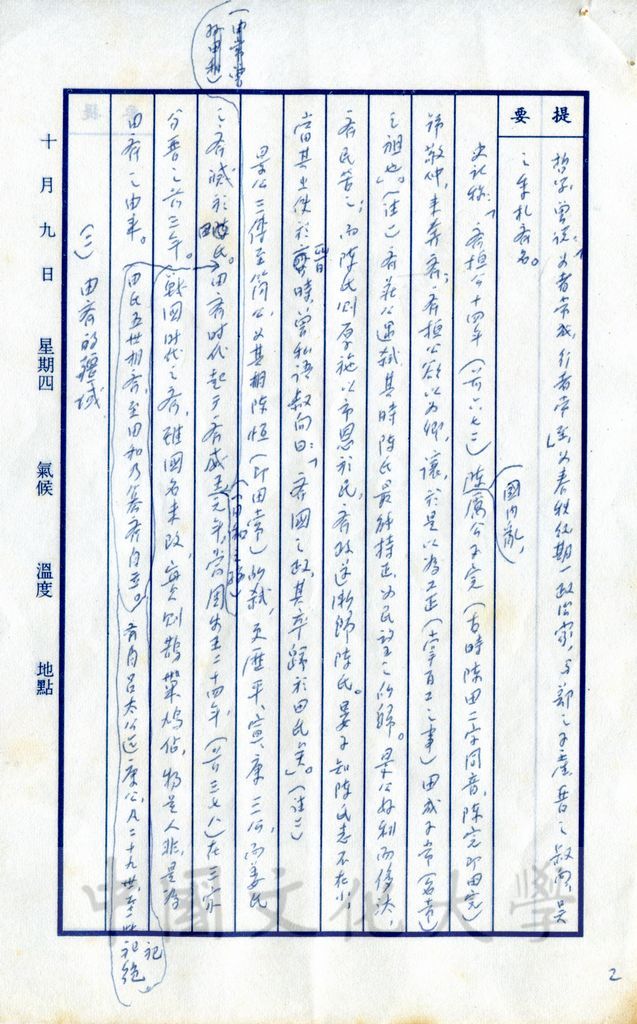 提要
哲學,曾說:「為者常成,行者常至」為春秋後期一政治家,與鄭之子產晉之叔向吳
之季札齊名。
史記稱:「齊桓公十四年(前六七二)陳國內亂,厲公子完(古時陳田二字同音,陳完即田完)
諱敬仲,來奔齊;齊桓公欲以為卿,讓,於是以為工正(掌百工之事)田成子常
之祖也。」(註一)齊莊公遇弒其時陳氏最能持正,為民望之所歸。景公好利而侈汰,
齊民苦之;而陳氏則厚施以市恩於民,齊政遂漸歸陳氏。晏子知陳氏志不在小,
當其出使於晉時,曾私語叔向曰:「齊國之政,其卒歸於田氏矣」。(註二)
景公三傳至簡公,為其相陳恒(即田常)所弒,更歷平、宣、康三公,而姜氏
之齊滅於田氏。田齊時代起于齊威王元年,當周安王二十四年,(前三七八)在三家
分晉之前三年。戰國時代之齊,雖國名未改,實則鵲巢鳩佔,物是人非,是為
田齊之由來。
田氏五世相齊,至田和乃篡齊自立。齊自呂太公迄康公,凡二十九世,至此祀絕
(三)田齊的疆域
十月九日 星期四 氣候 溫度 地點
中國文化大學
2